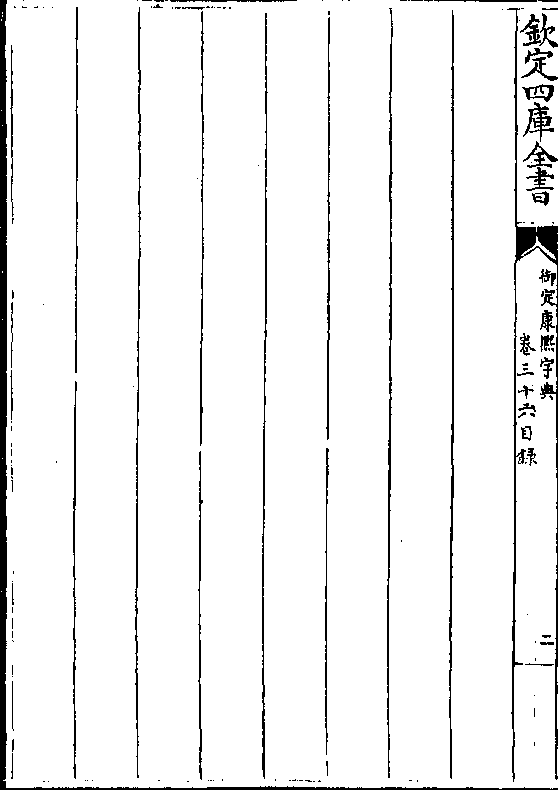 欽定四庫全書
御定康熙字典
卷三十六目錄
二